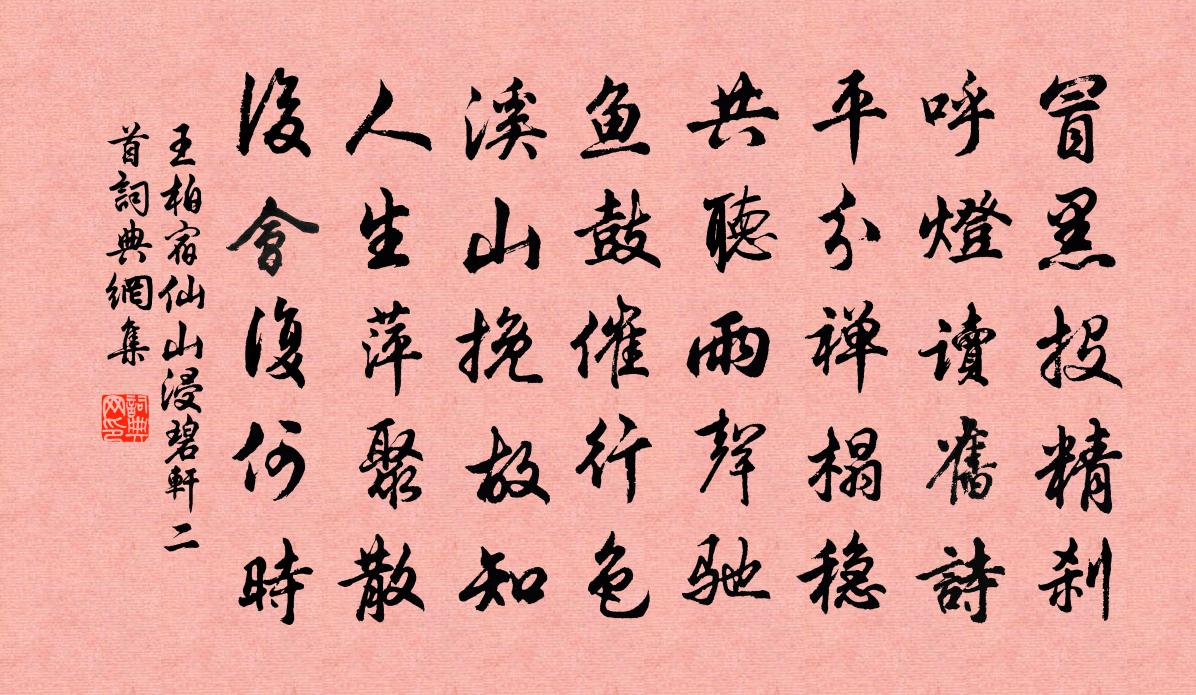 冒黑投精刹
呼燈讀舊詩
平分禅榻稳
共聽雨聲馳
鱼鼓催行色
溪山挽故知
人生萍聚散
後會復何時
王柏宿仙山浸碧軒二
首詞典網集
詞典网印